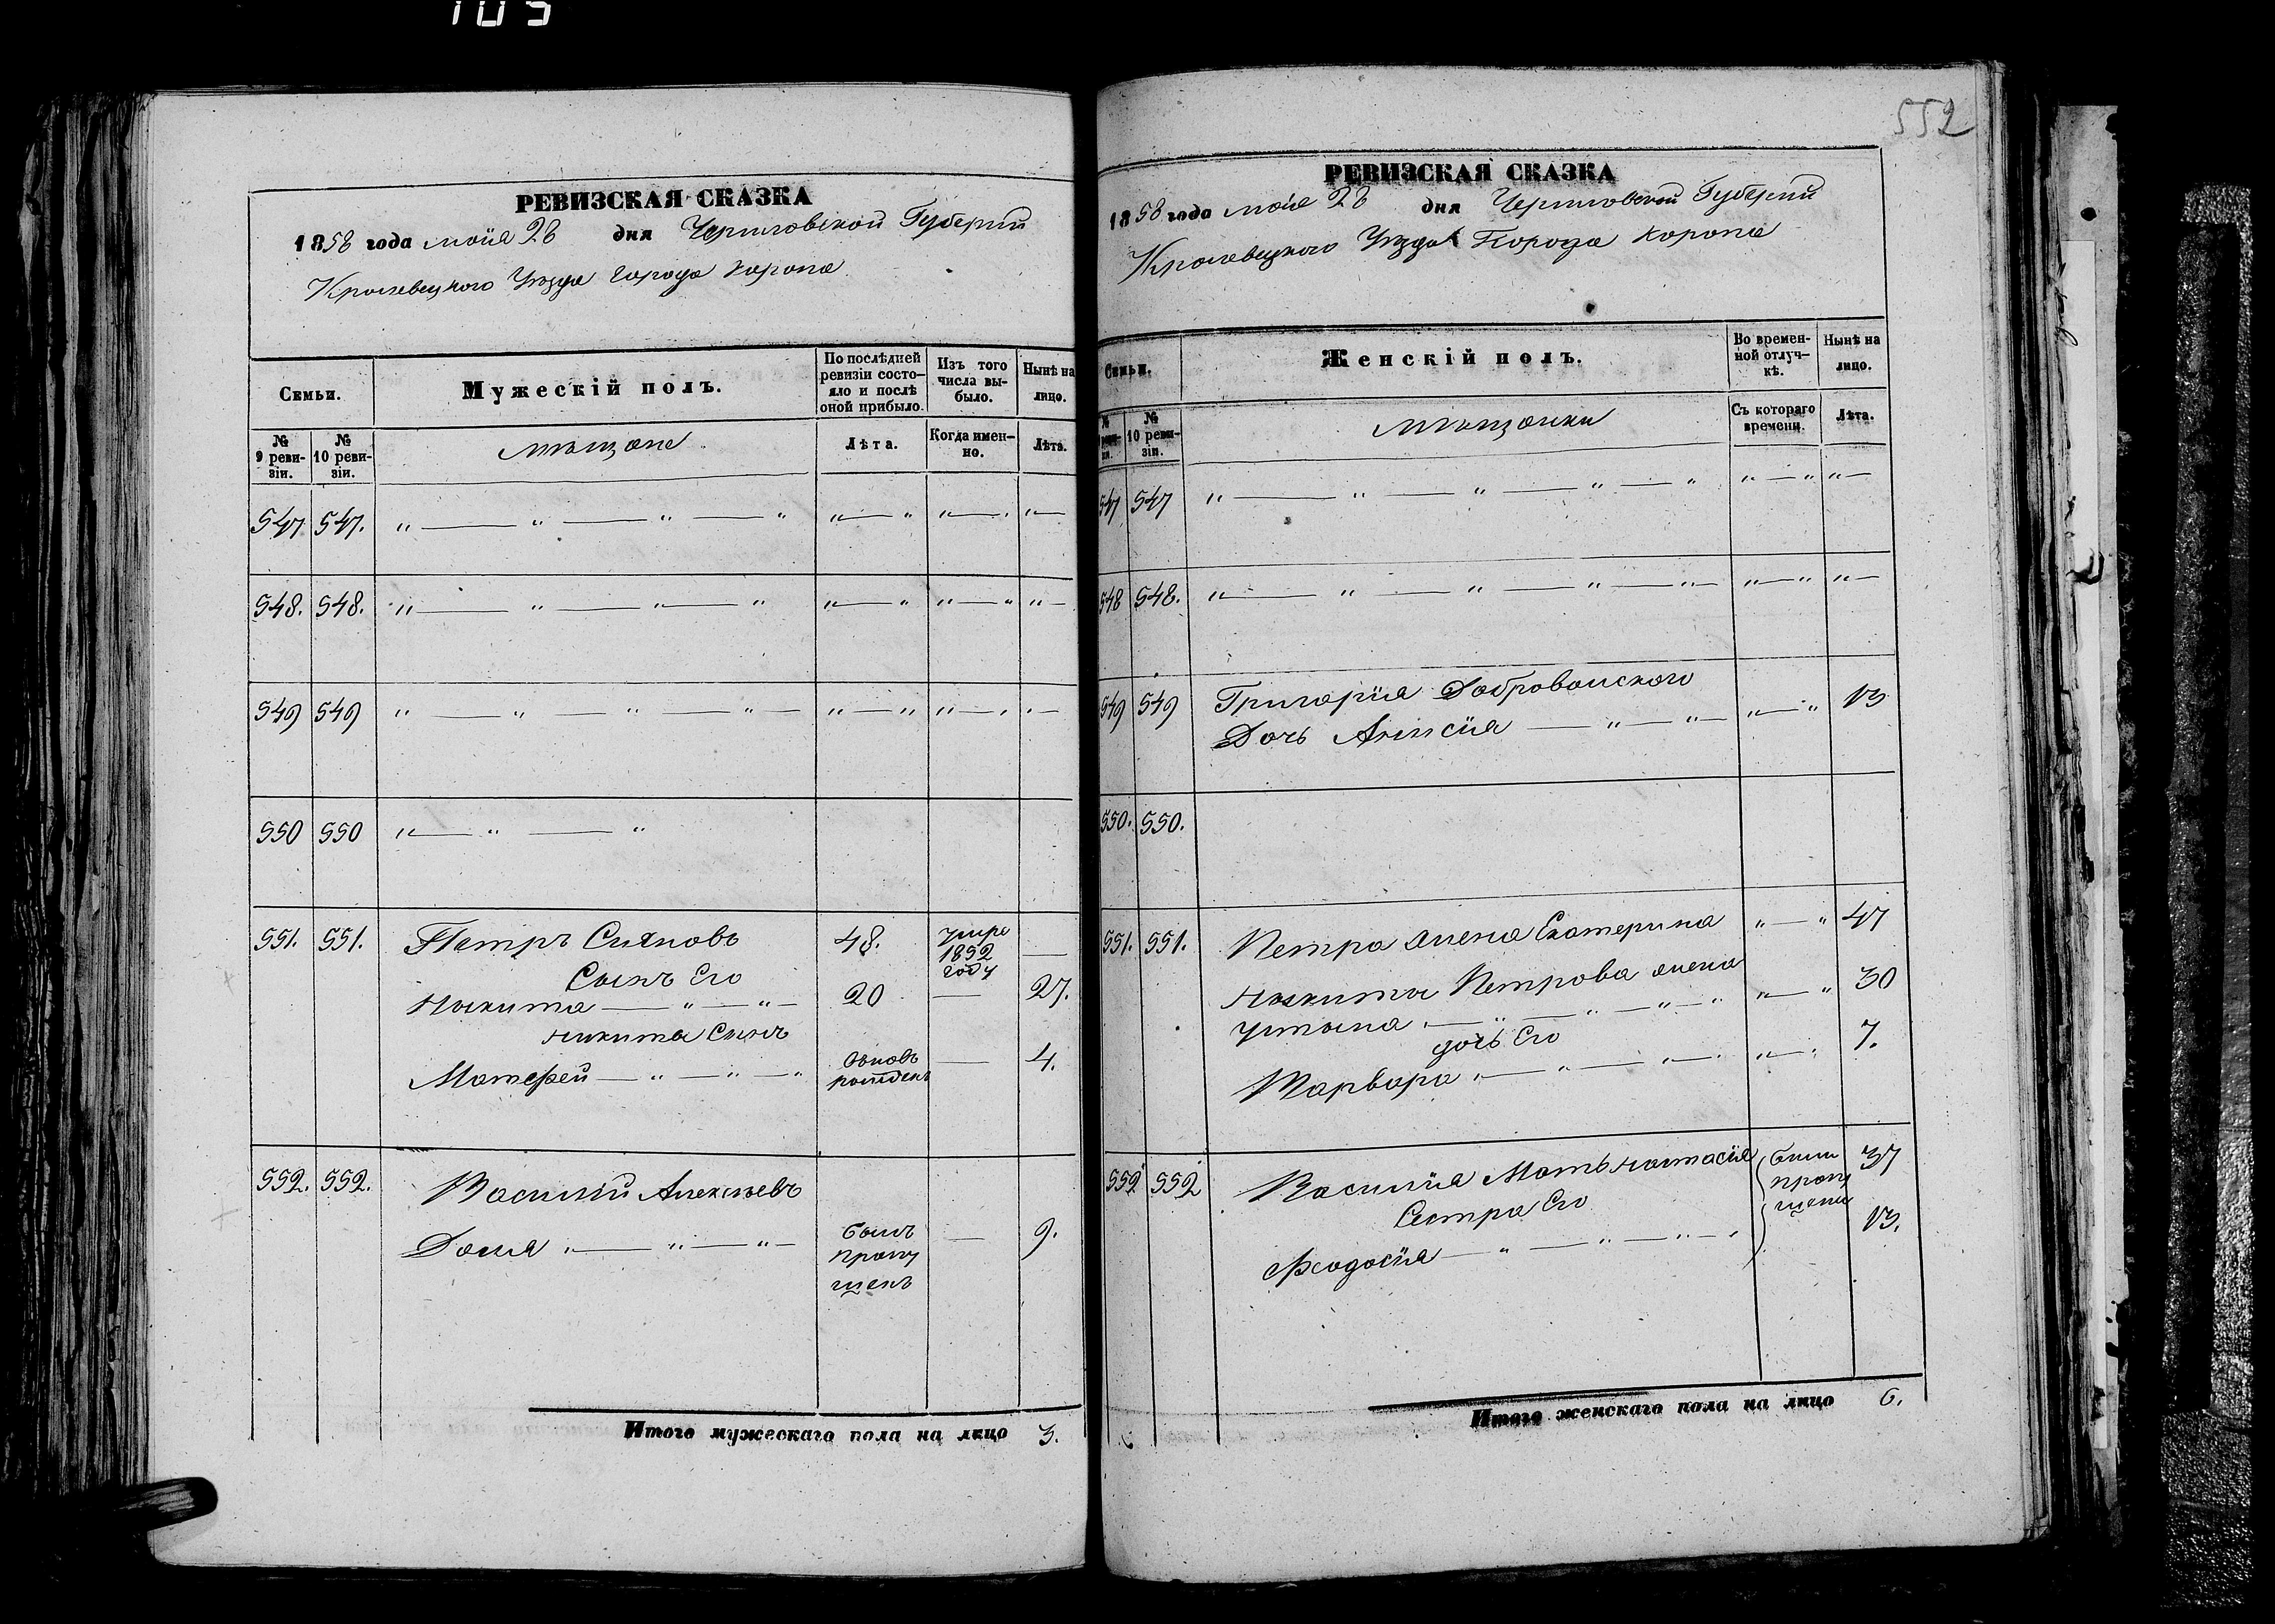 105
552
РЕВИЗСКАЯ СКАЗКА
1858 года мая 28 дня Черниговской Губернии
Кролевецкого Уезда Города Коропа
Семьи.
Мужескій полъ.
По послѣдней ревизіи состо-
яло и послѣ
оной прибыло.
Изъ того
числа вы-
было.
Нынѣ на
лицо.
№
9 реви-
зіи.
№
10 реви-
зіи.
мещане
Лѣта.
Когда имен-
но.
Лѣта.
547 547. " — " — " — " " — " " — " " —
548. 548. " — " — " — " " — " " — " " —
549 549 " — " — " — " — " — " " — " " —
550 550 " — " — "
551. 551. Петръ Сияновъ 48. умре
1852
году —
Сынъ Его
Никита — " — " — 20 — 27.
Никита Сынъ
Матфей — " — " — " вновь
рожденъ — 4.
552. 552. Василий Алексѣевъ
Доля " — " — " — былъ
пропу
щенъ — 9.
Итого мужескаго пола на лицо 3.
РЕВИЗСКАЯ СКАЗКА
1858 года мая 28 дня Черниговской Губернии
Кролевецкого Уезда Города Коропа
Семьи.
Женскій полъ.
Во времен-
ной отлуч-
кѣ.
Нынѣ на
лицо.
№
10 реви-
зіи.
мещанки
Съ котораго
времени.
Лѣта.
547 547 " — " — " — " — " " — " " —
548 548. " — " — " — " — " — " — " " —
549 549 Григорія Добровольского
Дочь — " — " — " — " 13
550. 550.
551. 551. Петра жена Екатерина " — " 47
Никита Петрова жена
Устина " — " — " — " — " " — " 30
дочь Его
Варвара " — " — " — " " — " 7.
552 552 Василія Мать Настасія были
пропу
щены 37
Сестра Его
Феодосія — " — " — " — " 13.
Итого женскаго пола на лицо 6.